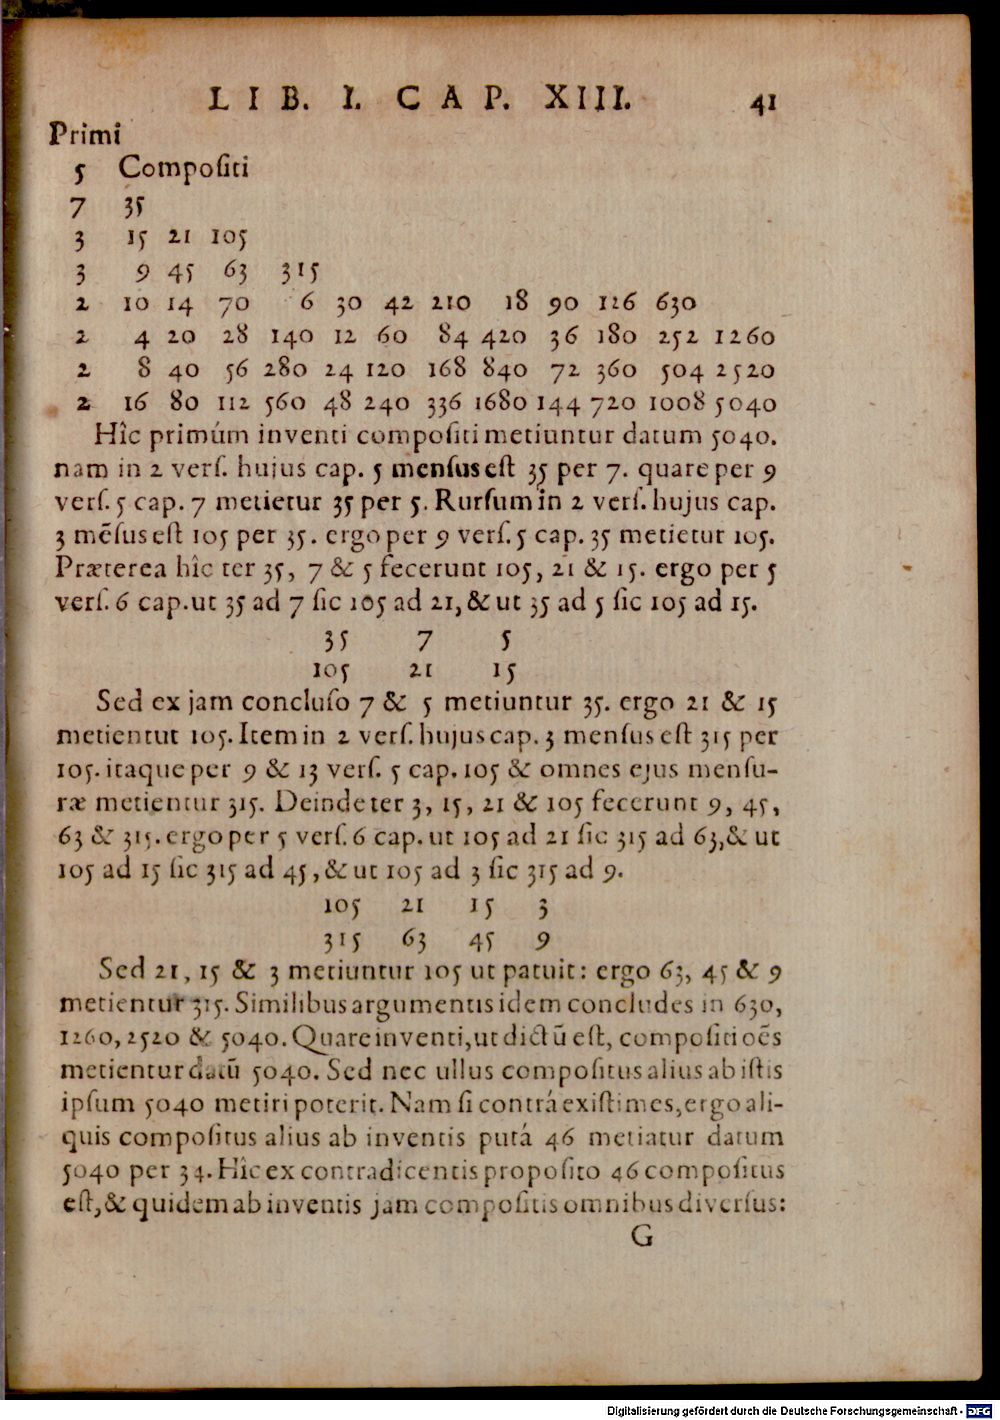 LIB. I. CAP. XIII. 41
Primi
5 Compoſiti
7 35
3 15 21 105
3 9 45 63 315
2 10 14 70 6 30 42 210 18 90 126 630
2 4 20 28 140 12 60 84 420 36 180 252 1260
2 8 40 56 280 24 120 168 840 72 360 504 2520
2 16 80 112 560 48 240 336 1680 144 720 1008 5040
Hîc primúm inventi compoſiti metiuntur datum 5040.
nam in 2 verſ. hujus cap. 5 menſus eſt 35 per 7. quare per 9
verſ. 5 cap. 7 metietur 35 per 5. Rurſum in 2 verſ. hujus cap.
3 mēſus eſt 105 per 35. ergo per 9 verſ. 5 cap. 35 metietur 105.
Præterea hîc ter 35, 7 & 5 fecerunt 105, 21 & 15. ergo per 5
verſ. 6 cap. ut 35 ad 7 ſic 105 ad 21, & ut 35 ad 5 ſic 105 ad 15.
35 7 5
105 21 15
Sed ex jam concluſo 7 & 5 metiuntur 35. ergo 21 & 15
metientut 105. Item in 2 verſ. hujus cap. 3 menſus eſt 315 per
105. itaque per 9 & 13 verſ. 5 cap. 105 & omnes ejus menſu-
ræ metientur 315. Deinde ter 3, 15, 21 & 105 fecerunt 9, 45,
63 & 315. ergo per 5 verſ. 6 cap. ut 105 ad 21 ſic 315 ad 63, & ut
105 ad 15 ſic 315 ad 45, & ut 105 ad 3 ſic 315 ad 9.
105 21 15 3
315 63 45 9
Sed 21, 15 & 3 metiuntur 105 ut patuit: ergo 63, 45 & 9
metientur 315. Similibus argumentis idem concludes in 630,
1260, 2520 & 5040. Quare inventi, ut dictū eſt, compoſiti oēs
metientur datū 5040. Sed nec ullus compoſitus alius ab iſtis
ipſum 5040 metiri poterit. Nam ſi contrá exiſtimes, ergo ali-
quis compoſitus alius ab inventis putá 46 metiatur datum
5040 per 34. Hîc ex contradicentis propoſito 46 compoſitus
eſt, & quidem ab inventis jam compoſitis omnibus diverſus:
G
Digitalisierung gefördert durch die Deutsche Forschungsgemeinschaft - DFG